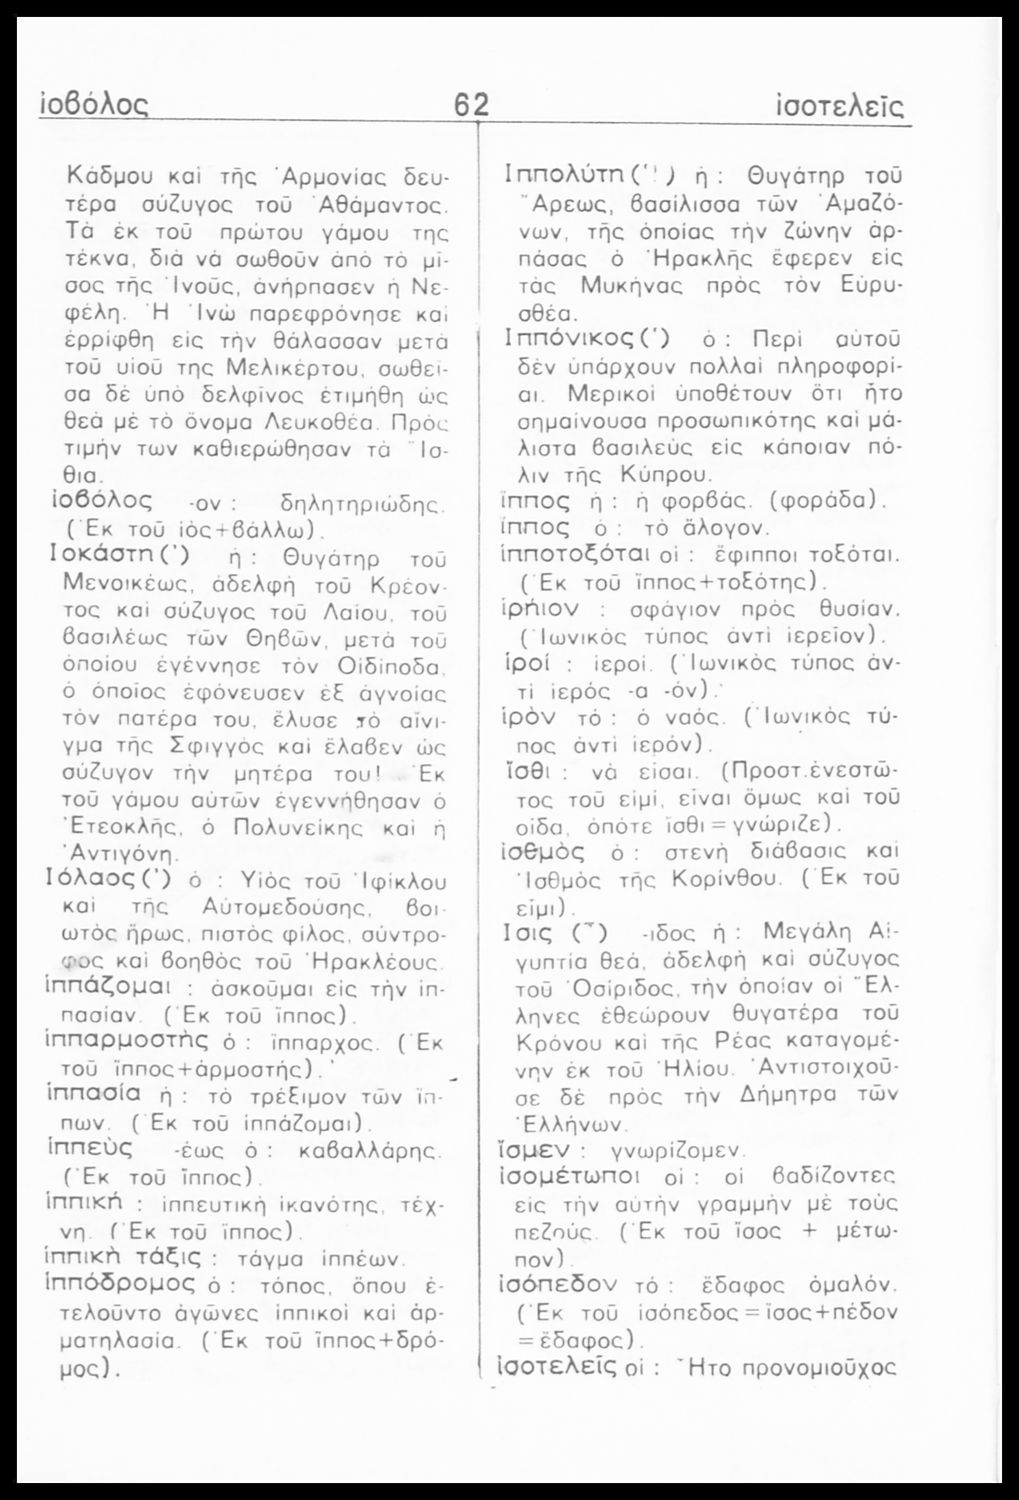 ἰοβόλος 62 ἰσοτελεῖς
Κάδμου καί τῆς Ἁρμονίας δευ-
τέρα σύζυγος τοῦ Ἀθάμαντος.
Τά ἐκ τοῦ πρώτου γάμου της
τέκνα, διά νά σωθοῦν ἀπό τό μῖ-
σος τῆς Ἰνοῦς, ἀνήρπασεν ἡ Νε-
φέλη. Ἡ Ἰνώ παρεφρόνησε καί
ἐρρίφθη εἰς τήν θάλασσαν μετά
τοῦ υἱοῦ της Μελικέρτου, σωθεῖ-
σα δέ ὑπό δελφῖνος ἐτιμήθη ὡς
θεά μέ τό ὄνομα Λευκοθέα. Πρός
τιμήν των καθιερώθησαν τά Ἴσ-
θια.
ἰοβόλος -ον : δηλητηριώδης.
(Ἐκ τοῦ ἰός+βάλλω).
Ιοκάστη(᾿) ἡ : Θυγάτηρ τοῦ
Μενοικέως, ἀδελφή τοῦ Κρέον-
τος καί σύζυγος τοῦ Λαίου, τοῦ
βασιλέως τῶν Θηβῶν, μετά τοῦ
ὁποίου ἐγέννησε τόν Οἰδίποδα,
ὁ ὁποῖος ἐφόνευσεν ἐξ ἀγνοίας
τόν πατέρα του, ἔλυσε τό αἴνι-
γμα τῆς Σφιγγός καί ἔλαβεν ὡς
σύζυγον τήν μητέρα του! Ἐκ
τοῦ γάμου αὐτῶν ἐγεννήθησαν ὁ
Ἐτεοκλῆς, ὁ Πολυνείκης καί ἡ
Ἀντιγόνη.
Ιόλαος(᾿) ὁ : Υἱός τοῦ Ἰφίκλου
καί τῆς Αὐτομεδούσης, βοι-
ωτός ἥρως, πιστός φίλος, σύντρο-
φος καί βοηθός τοῦ Ἡρακλέους.
ἱππάζομαι : ἀσκοῦμαι εἰς τήν ἱπ-
πασίαν. (Ἐκ τοῦ ἵππος).
ἱππαρμοστὴς ὁ : ἵππαρχος. (Ἐκ
τοῦ ἵππος+ἁρμοστής).
ἱππασία ἡ : τό τρέξιμον τῶν ἵπ-
πων. (Ἐκ τοῦ ἱππάζομαι).
ἱππεὺς -έως ὁ : καβαλλάρης.
(Ἐκ τοῦ ἵππος).
ἱππική : ἱππευτική ἱκανότης, τέχ-
νη. (Ἐκ τοῦ ἵππος).
ἱππικὴ τάξις : τάγμα ἱππέων.
ἱππόδρομος ὁ : τόπος, ὅπου ἐ-
τελοῦντο ἀγῶνες ἱππικοί καί ἁρ-
ματηλασία. (Ἐκ τοῦ ἵππος+δρό-
μος).
Ιππολύτη(῾) ἡ : Θυγάτηρ τοῦ
Ἄρεως, βασίλισσα τῶν Ἀμαζό-
νων, τῆς ὁποίας τήν ζώνην ἁρ-
πάσας ὁ Ἡρακλῆς ἔφερεν εἰς
τάς Μυκήνας πρός τόν Εὐρυ-
σθέα.
Ιππόνικος(῾) ὁ : Περί αὐτοῦ
δέν ὑπάρχουν πολλαί πληροφορί-
αι. Μερικοί ὑποθέτουν ὅτι ἦτο
σημαίνουσα προσωπικότης καί μά-
λιστα βασιλεύς εἰς κάποιαν πό-
λιν τῆς Κύπρου.
ἵππος ἡ : ἡ φορβάς. (φοράδα).
ἵππος ὁ : τό ἄλογον.
ἱπποτοξόται οἱ : ἔφιπποι τοξόται.
(Ἐκ τοῦ ἵππος+τοξότης).
ἱρήιον : σφάγιον πρός θυσίαν.
(Ἰωνικός τύπος ἀντί ἱερεῖον).
ἱροί : ἱεροί. (Ἰωνικός τύπος ἀν-
τί ἱερός -α -όν).
ἱρὸν τό : ὁ ναός. (Ἰωνικός τύ-
πος ἀντί ἱερόν).
ἴσθι : νά εἶσαι. (Προστ.ἐνεστῶ-
τος τοῦ εἰμί, εἶναι ὅμως καί τοῦ
οἶδα, ὁπότε ἴσθι=γνώριζε).
ἰσθμὸς ὁ : στενή διάβασις καί
Ἰσθμός τῆς Κορίνθου. (Ἐκ τοῦ
εἶμι).
Ισις (῏) -ιδος ἡ : Μεγάλη Αἰ-
γυπτία θεά, ἀδελφή καί σύζυγος
τοῦ Ὀσίριδος, τήν ὁποίαν οἱ Ἕλ-
ληνες ἐθεώρουν θυγατέρα τοῦ
Κρόνου καί τῆς Ρέας καταγομέ-
νην ἐκ τοῦ Ἡλίου. Ἀντιστοιχοῦ-
σε δέ πρός τήν Δήμητρα τῶν
Ἑλλήνων.
ἴσμεν : γνωρίζομεν.
ἰσομέτωποι οἱ : οἱ βαδίζοντες
εἰς τήν αὐτήν γραμμήν μέ τούς
πεζούς. (Ἐκ τοῦ ἴσος + μέτω-
πον).
ἰσόπεδον τό : ἔδαφος ὁμαλόν.
(Ἐκ τοῦ ἰσόπεδος=ἴσος+πέδον
=ἔδαφος).
ἰσοτελεῖς οἱ : Ἦτο προνομιοῦχος